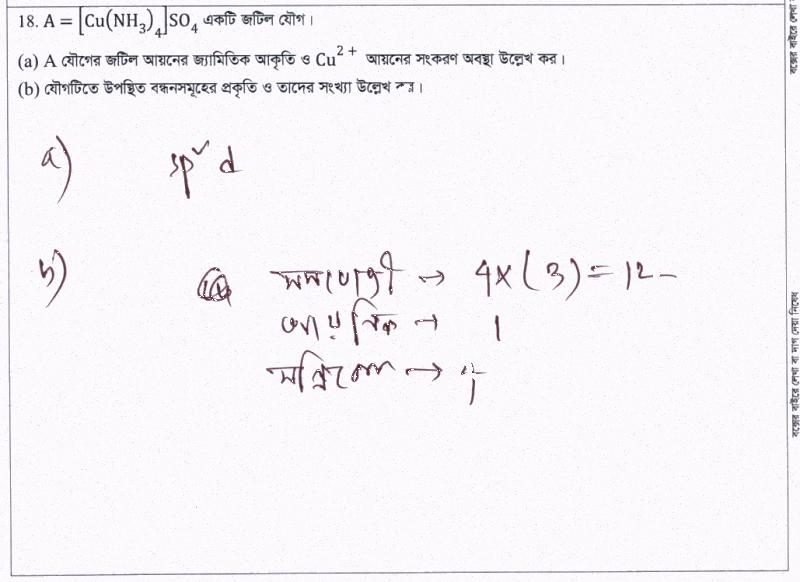 18. A = [Cu(NH₃)₄]SO₄ একটি জটিল যৌগ।
(a) A যৌগের জটিল আয়নের জ্যামিতিক আকৃতি ও Cu²⁺ আয়নের সংকরণ অবস্থা উল্লেখ কর।
(b) যৌগটিতে উপস্থিত বন্ধনসমূহের প্রকৃতি ও তাদের সংখ্যা উল্লেখ কর।
a) sp² d
b) সমযোজী → 4×(3) = 12
আয়নিক → 1
সন্নিবেশ → 4
বক্সের বাইরে লেখা
বক্সের বাইরে লেখা বা দাগ দেয়া নিষেধ